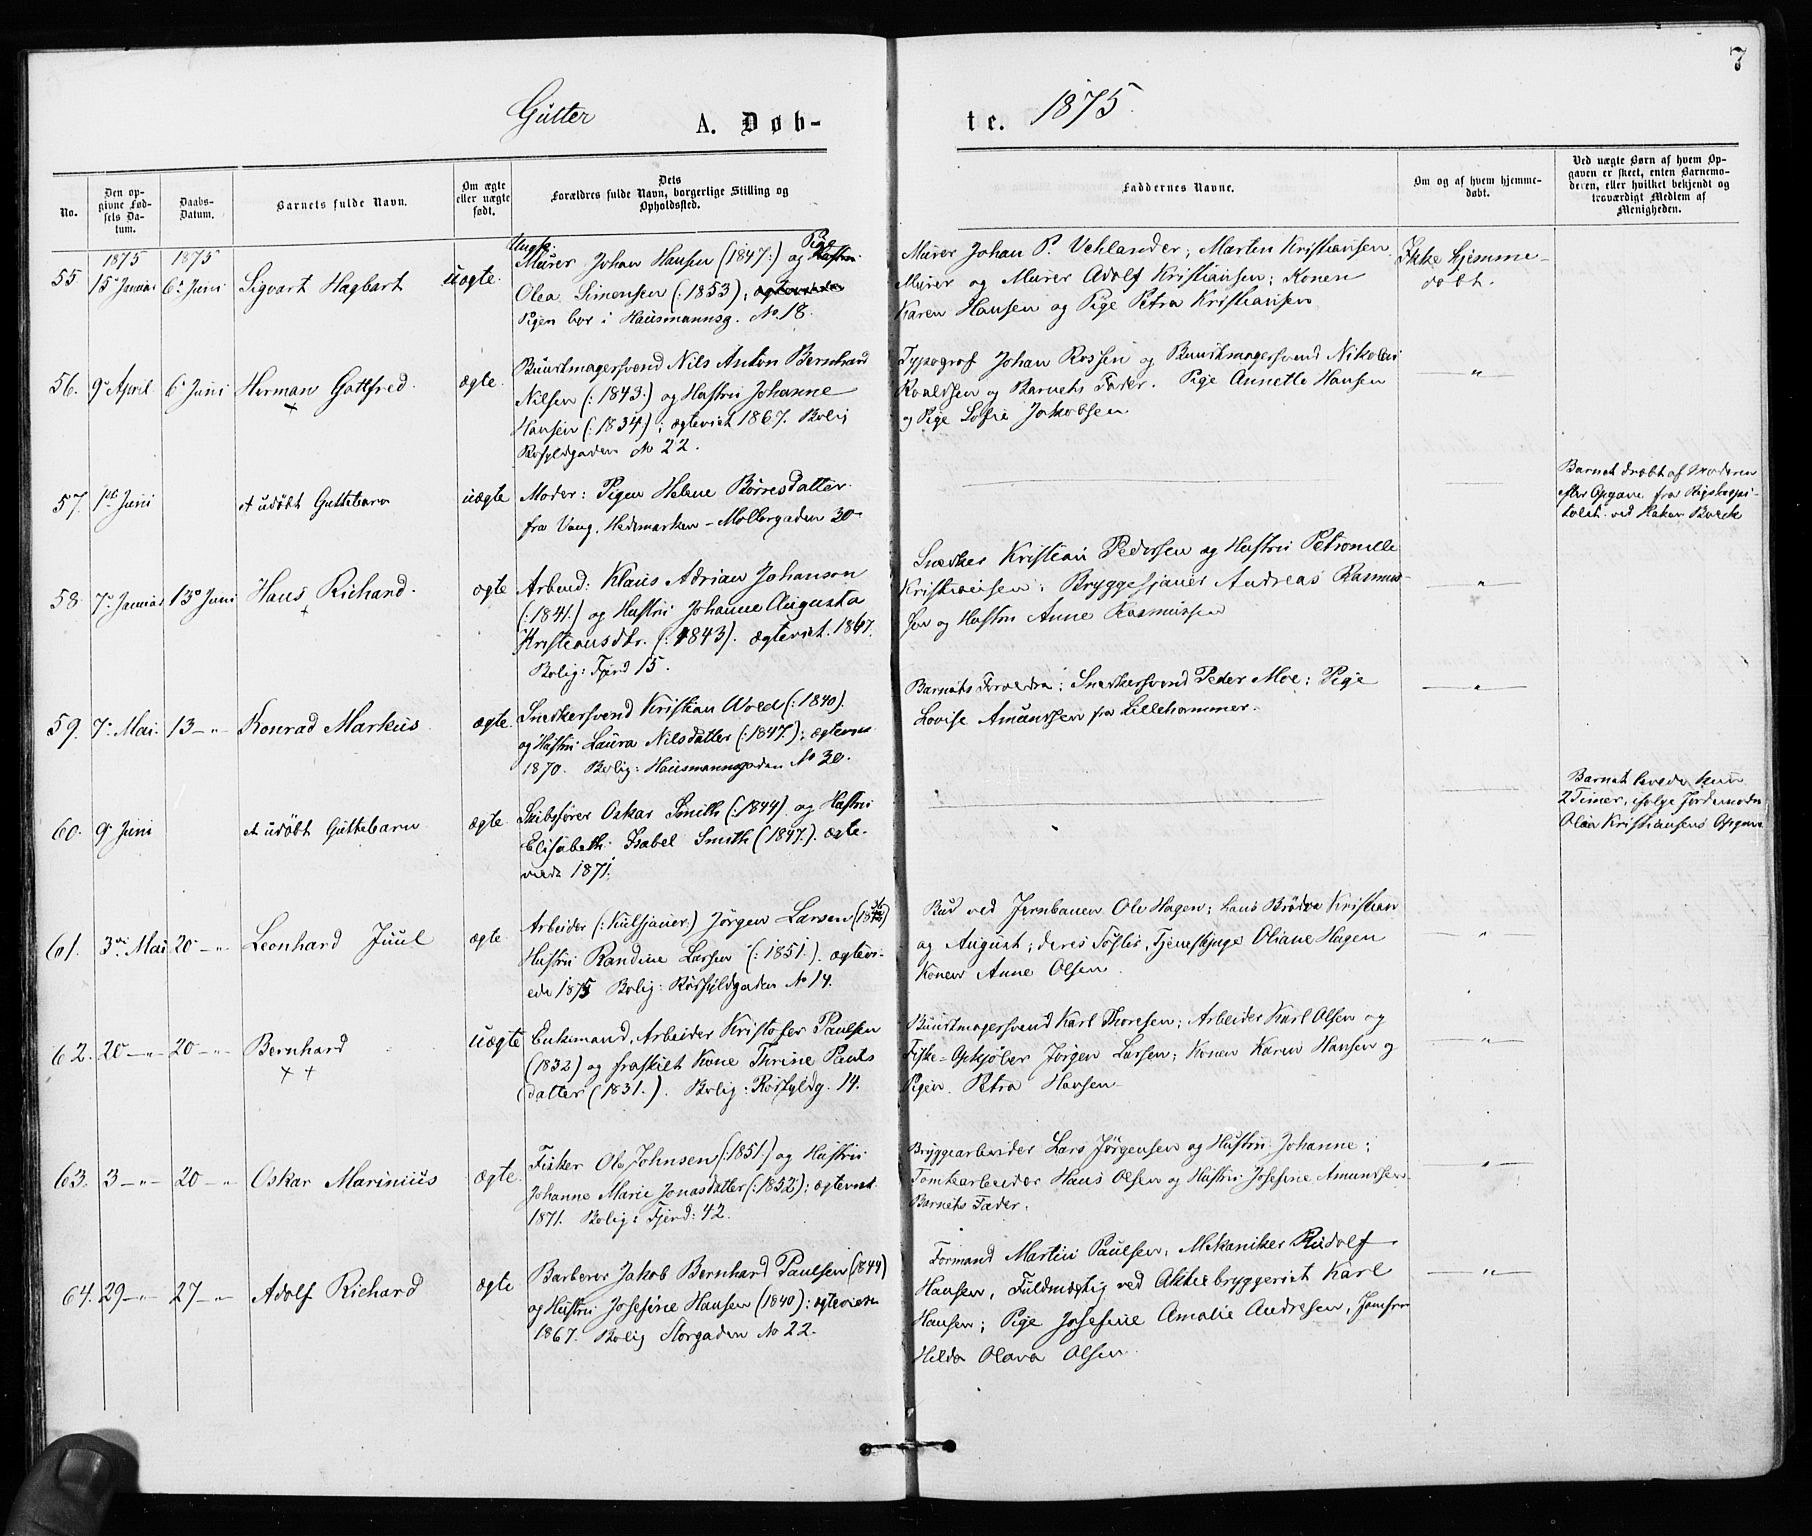 7
Gutter A. Døb- te. 1875.
No.
Den op-
givne Fød-
sels Da-
tum.
Daabs-
Datum.
Barnets fulde Navn.
Om ægte
eller uægte
født.
Dets
Forældres fulde Navn, borgerlige Stilling og
Opholdssted.
Faddernes Navne.
Om og af hvem hjemme-
døbt.
Ved uægte Børn af hvem Op-
gaven er skeet, enten Barnemo-
deren, eller hvilket bekjendt og
troværdigt Medlem af
Menigheden.
1875 1875
55 15 Januar 6 Juni Sigvart Hagbart uægte.
Ungk.
Murer Johan Hansen (1847:) og Pige Hustru
Olea Simensen (:1853); ægteviede
Pigen bor i Hausmannsg. No 18.
Murer Johan P. Vehlander; Martin Kristiansen
Murer og Murer Adolf Kristiansen; Konen
Karen Hansen og Pige Petra Kristiansen
Ikke hjemme-
døbt.
56. 9 April 6 Juni Herman Gottfred. ægte.
Buntmagersvend Nils Anton Bernhard
Nilsen (:1843:) og Hustru Johanne
Hansen (:1834:); ægteviet 1867. Bolig
Rosfyldgaden No 22.
Typograf Johan Rossen og Buntmagersvend Nikolai
Roaldsen og Barnets Fader. Pige Annette Hansen
og Pige Sofie Jakobsen
— " —
57. 1ste Juni et udøbt Guttebarn uægte
Moder: Pigen Helene Børresdatter
fra Vang, Hedemarken – Møllergaden 30
Barnet dræbt af Moderen
efter Opgave fra Rigshospi-
talet ved Hakon Boeck
58 7 Januar 13 Juni Hans Richard. ægte
Arbeid: Klaus Adrian Johanson
(:1841.) og Hustru Johanne Augusta
Kristiansdtr. (:1843). ægteviet. 1867.
Bolig: Fjerd 15.
Snedker Kristian Pedersen og Hustru Petronelle
Kristiansen; Bryggesjauer Andreas Rasmus-
sen og Hustru Anne Rasmussen
— " —
59. 7 Mai. 13 — " Konrad Markus ægte.
Snedkersvend Kristian Wold (:1840).
og Hustru Laura Nilsdatter (:1847.); ægteviet
1870. Bolig: Hausmannsgaden No 30.
Barnets Forældre; Snedkersvend Peder Moe; Pige
Lovise Amundsen fra Lillehammer.
— " —
60. 9 Juni et udøbt Guttebarn ægte
Skibsfører Oskar Smith (:1844) og Hustru
Elisabeth Isabel Smith (1847.). ægte-
viede 1871.
Barnet levede kun
2 Timer, ifølge Jordemoder
Olea Kristiansens Opgave
61. 3die Mai 20 — " Leonhard Juul ægte
Arbeider (: Kulsjauer:) Jørgen Larsen
Hustru Randine Larsen (:1851.). ægtevi-
ede 1875 Bolig: Rosfyldgaden No 14.
Bud ved Jernbanen Ole Hagen; hans Brødre Kristian
og August; deres Søster, Tjenestpige Oliane Hagen
Konen Anne Olsen.
— " —
62. 20 — " 20 — " Bernhard uægte
Enkemand, Arbeider Kristofer Paulsen
(1832) og fraskilt Kone Thrine Pauls
datter (1831.). Bolig: Rosfyldg. 14.
Buntmagersvend Karl Thoresen; Arbeider Karl Olsen og
Fiske-Opkjøber Jørgen Larsen; Konen Karen Hansen og
Pigen Petra Hansen
— " —
63. 3 — " 20 — " Oskar Marinius ægte.
Fisker Ole Johnsen (:1851.) og Hustru
Johanne Marie Jonasdatter (:1852); ægteviet
1871. Bolig: Fjerd: 42.
Bryggearbeider Lars Jørgensen og Hustru Johanne;
Tomtearbeider Hans Olsen og Hustru Josefine Amundsen.
Barnets Fader.
— " —
64. 29 — " 27 — " Adolf Richard ægte
Barberer Jakob Bernhard Paulsen (1844)
og Hustru Josefine Hansen (1840); ægteviet
1867. Bolig Storgaden No 22.
Formand Martin Paulsen, Mekaniker Rudolf
Hansen, Fuldmægtig ved Aktiebryggeriet Karl
Hansen; Pige Josefine Amalie Andresen, Jomfru
Hilda Olava Olsen.
— " —